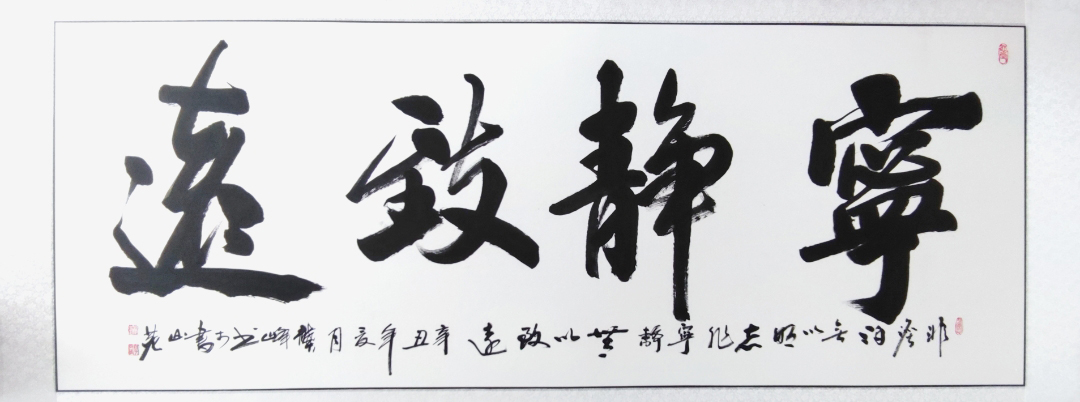 寧靜致遠
非澹泊無以明志非寧靜無以致遠辛丑年夏月峰书於書山苑